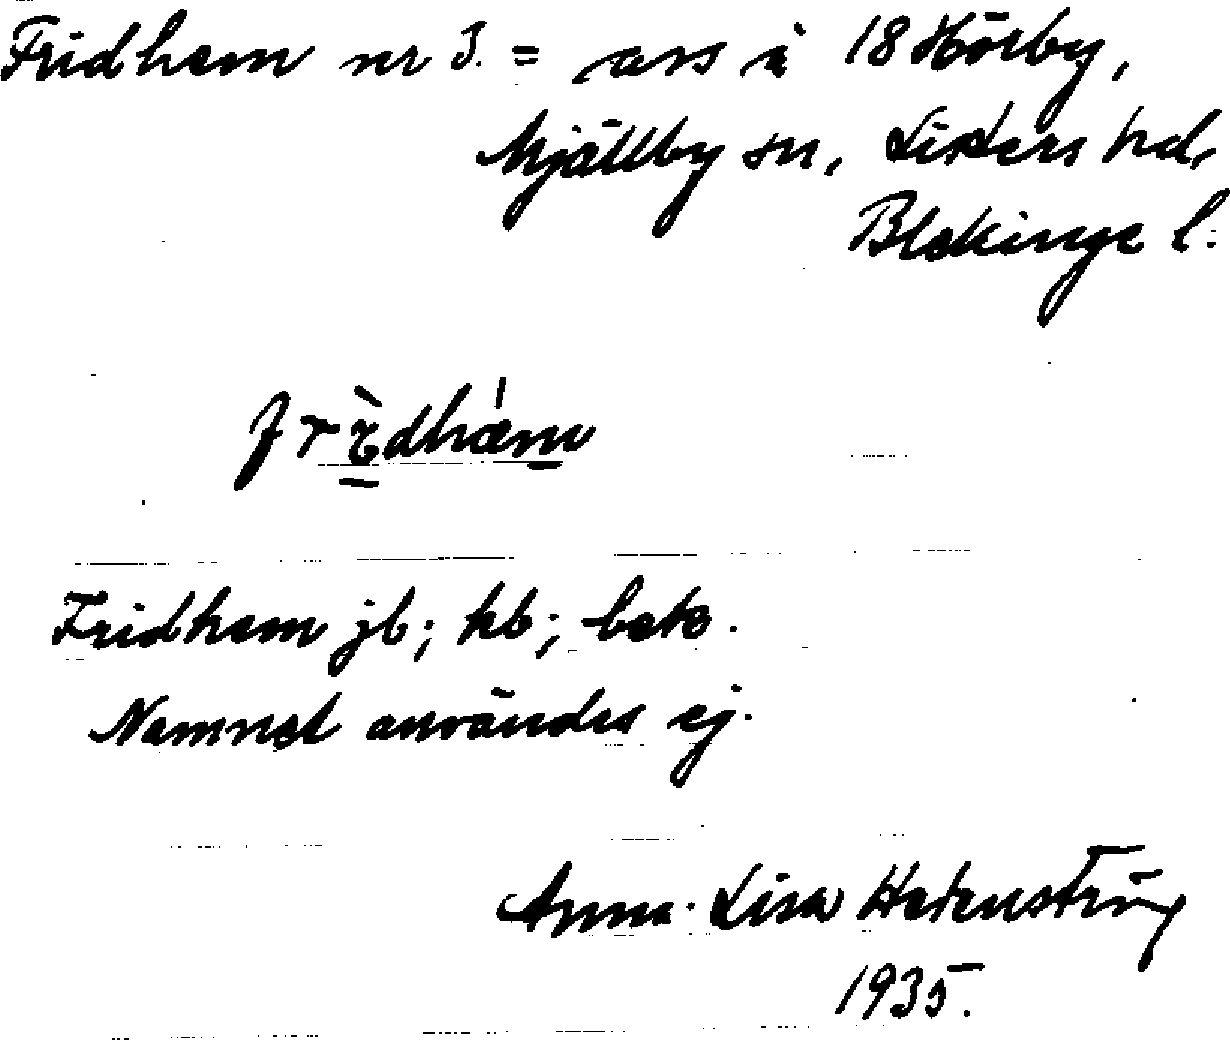 Fridhem nr 3. = avs å 18 Hörby,
Mjällby sn, Listers hd,
Blekinge l:
Fridhem jb; kb; bet.
Namnet användes ej.
Anna-Lisa
1935.